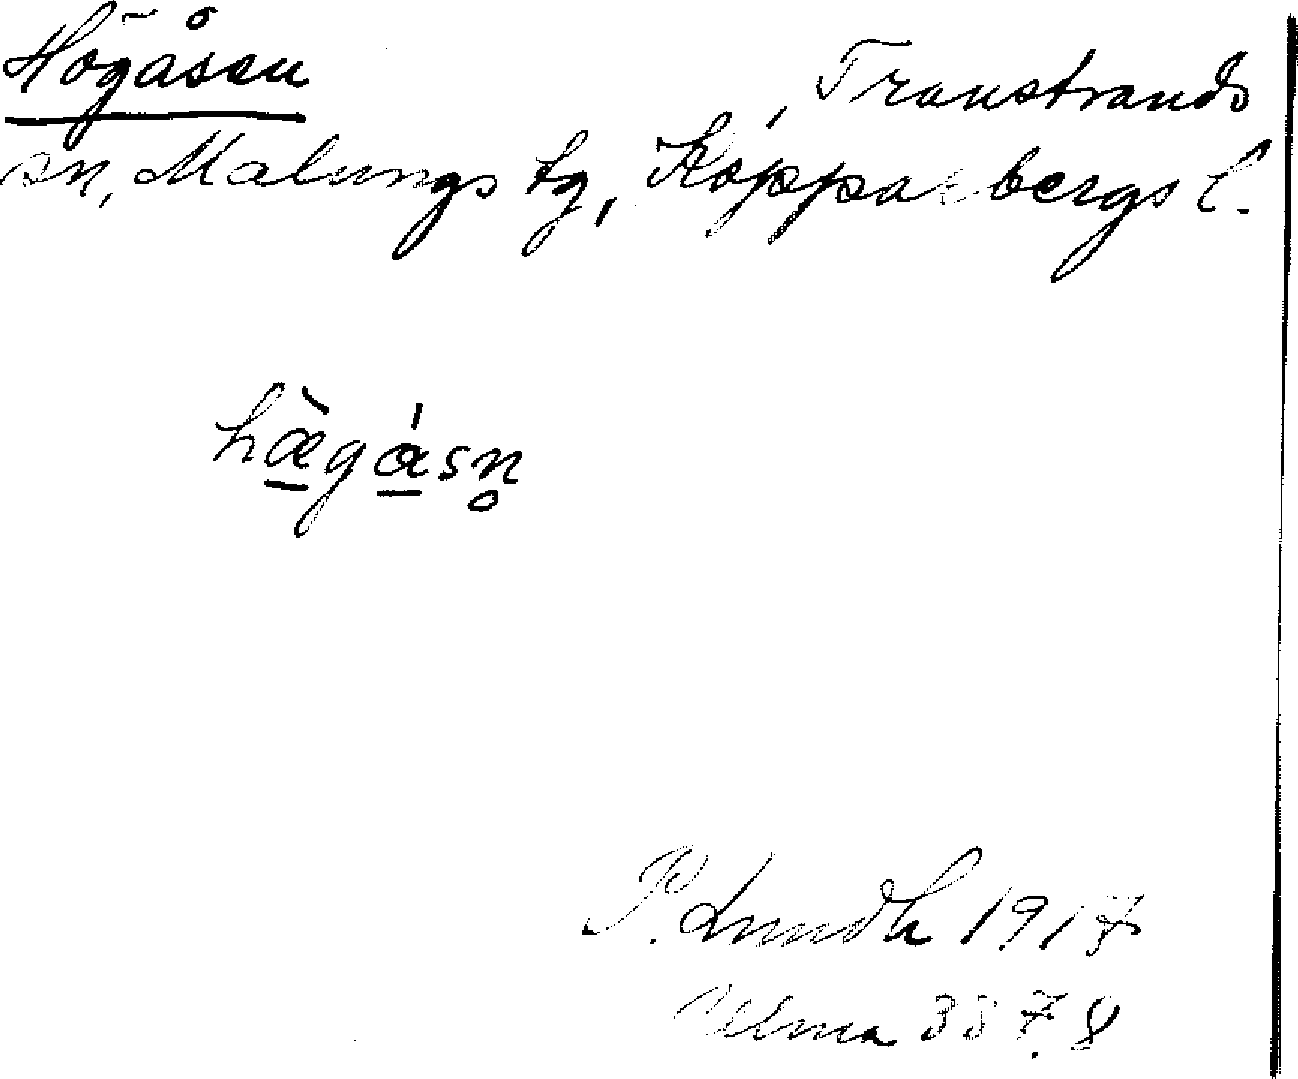 Högåsen
, Transtrands
sn, Malungs tg, Kopparbergs l.
hæ̱̀gά̱sn̥
P. Lundh 1917
Ulma 387.8